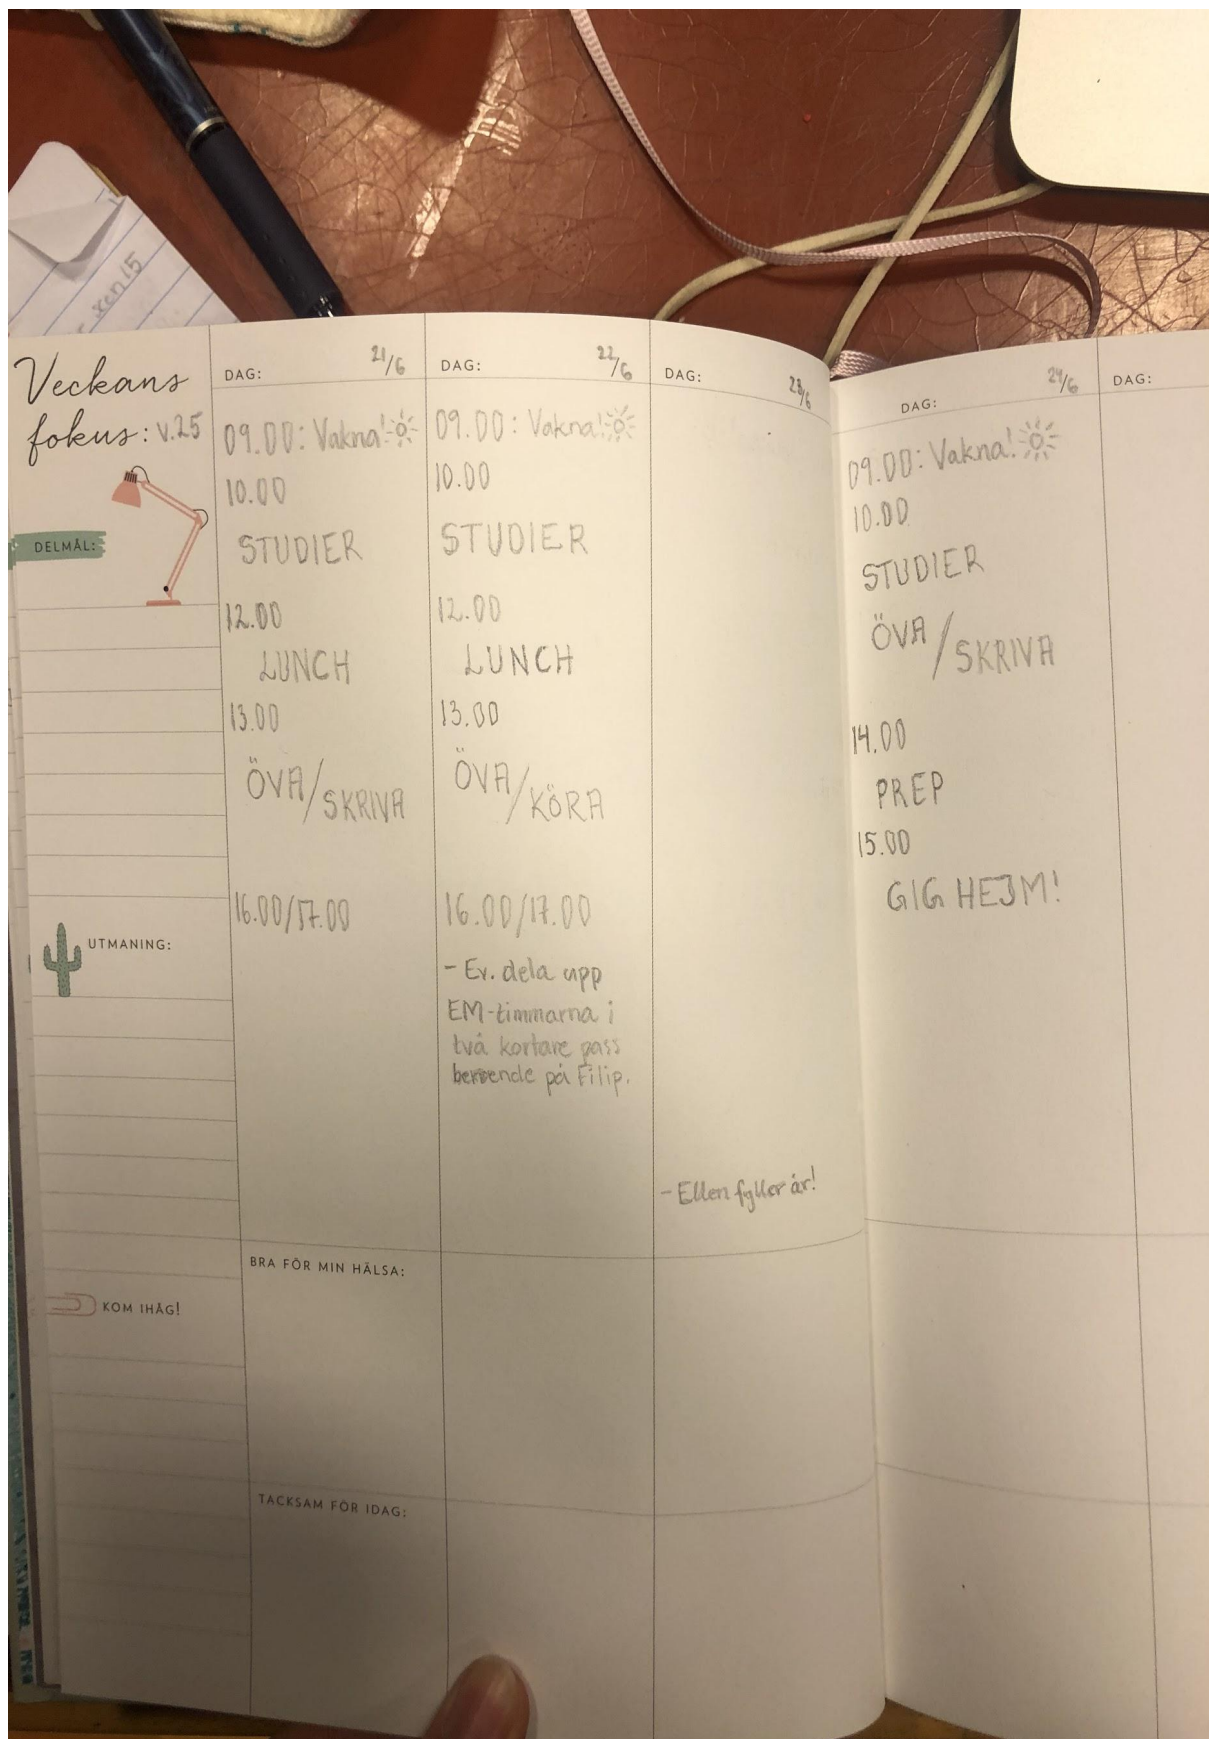 Veckans
fokus: v.25
DELMÅL:
UTMANING:
KOM IHÅG!
DAG: 21/6
09.00: Vakna!
10.00
STUDIER
12.00
LUNCH
13.00
ÖVA/SKRIVA
16.00/17.00
BRA FÖR MIN HÄLSA:
TACKSAM FÖR IDAG:
DAG: 22/6
09.00: Vakna!
10.00
STUDIER
12.00
LUNCH
13.00
ÖVA/KÖRA
16.00/17.00
- Ev. dela upp
EM-timmarna i
två kortare pass
beroende på Filip.
DAG: 23/6
- Ellen fyller år!
DAG: 24/6
09.00: Vakna!
10.00
STUDIER
ÖVA/SKRIVA
14.00
PREP
15.00
GIG HEJM!
DAG: